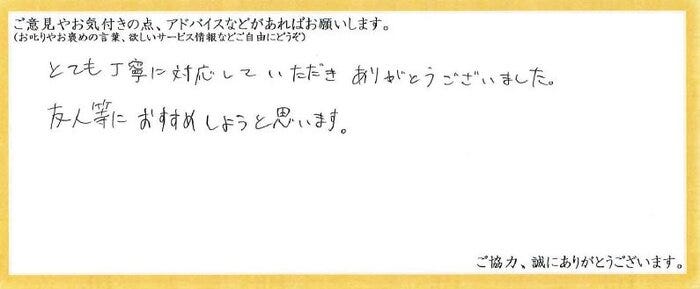 ご意見やお気付きの点、アドバイスなどがあればお願いします。
(お叱りやお褒めの言葉、欲しいサービス情報などご自由にどうぞ)
とても丁寧に対応していただきありがとうございました。
友人等におすすめしようと思います。
ご協力、誠にありがとうございます。